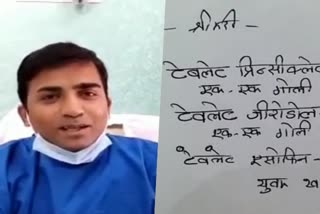 श्री हरी
टेबलेट प्रिन्सीक्लेव
एक-एक गोली
टेबलेट जीरोडोल
एक-एक गोली
टेबलेट इसोफिन -
सुबह खा